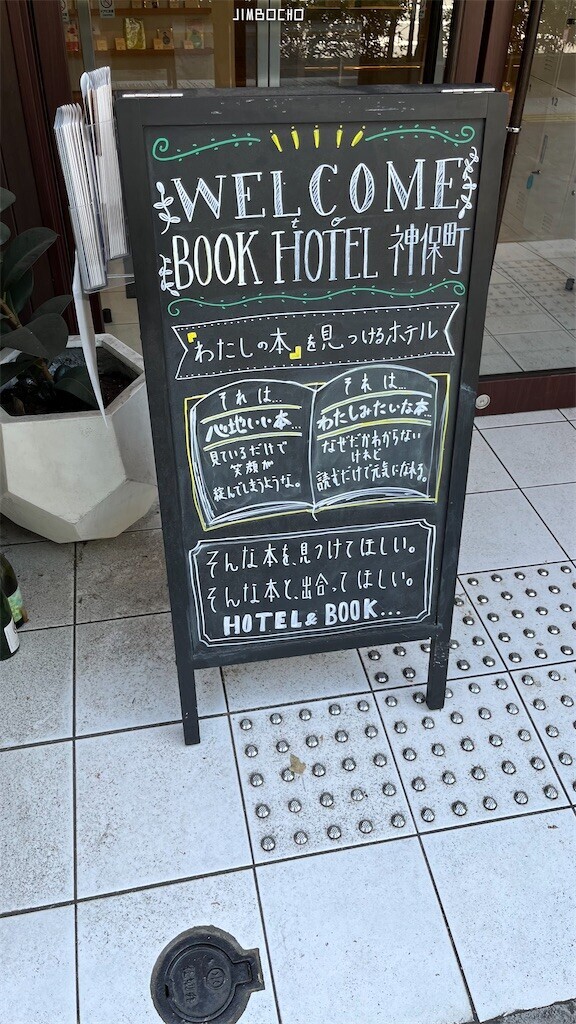 JIMBOCHO
WELCOME
to
BOOK HOTEL 神保町
『わたしの本』を見つけるホテル
それは...
心地いい本...
見ているだけで
笑顔が
綻んでしまうような。
それは...
わたしみたいな本...
なぜだかわからない
けれど
読むだけで元気になれる。
そんな本を、見つけてほしい。
そんな本と、出会ってほしい。
HOTEL & BOOK...